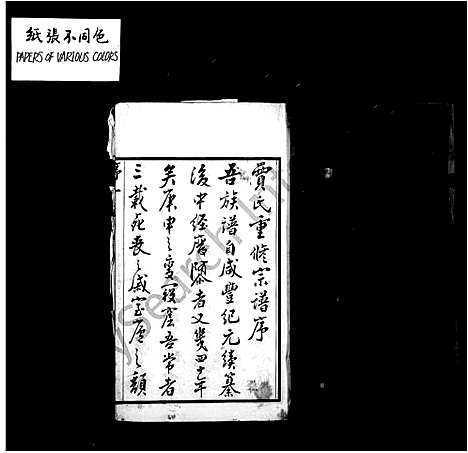 紙張不同色
PAPERS OF VARIOUS COLORS
賈氏重修宗譜序
吾族譜自咸豐紀元續纂
後中经磨者又幾四十年
矣庚申之變窟吾常者
三載死喪之戚室廬之頹
序
ySearch Int